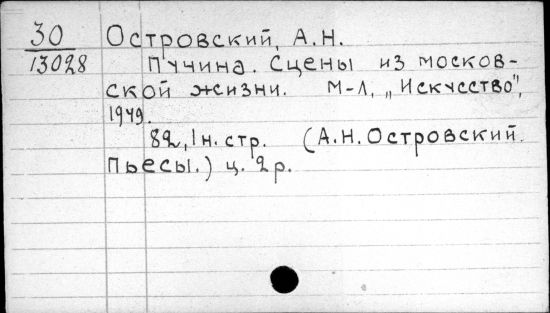 30 Островский, А.Н.
13028 Пучина. Сцены из москов-
ской жизни. М-Л, „Искусство",
1949.
82, 1н. стр. (А.Н. Островский.
Пьесы.) ц. 2 р.